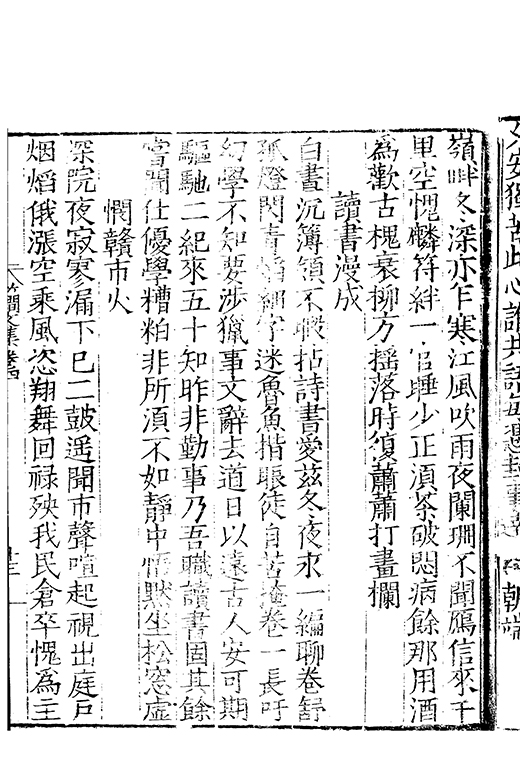 安獨苦此心誰共語
朝端
嶺畔冬深亦乍寒江風吹雨夜闌珊不聞鴈信來千
里空愧麟符絆一官睡少正湏茶破悶病餘那用酒
為歡古槐衰柳方摇落時復蕭蕭打畫欄
讀書漫成
白晝沉簿領不暇拈詩書愛茲冬夜永一編聊卷舒
孤燈閃青熖細字迷魯魚揩眼徒自苦掩卷一長吁
幻學不知要涉獵事文辭去道日以遠古人安可期
驅馳二紀來五十知昨非勤事乃吾職讀書固其餘
嘗聞仕優學糟粕非所湏不如静中悟默坐松窓虚
憫贛市火
深院夜寂寥漏下巳二鼓遥聞市聲喧起視出庭戶
烟熖俄漲空乘風恣翔舞回禄殃我民倉卒愧為主
集卷
十三